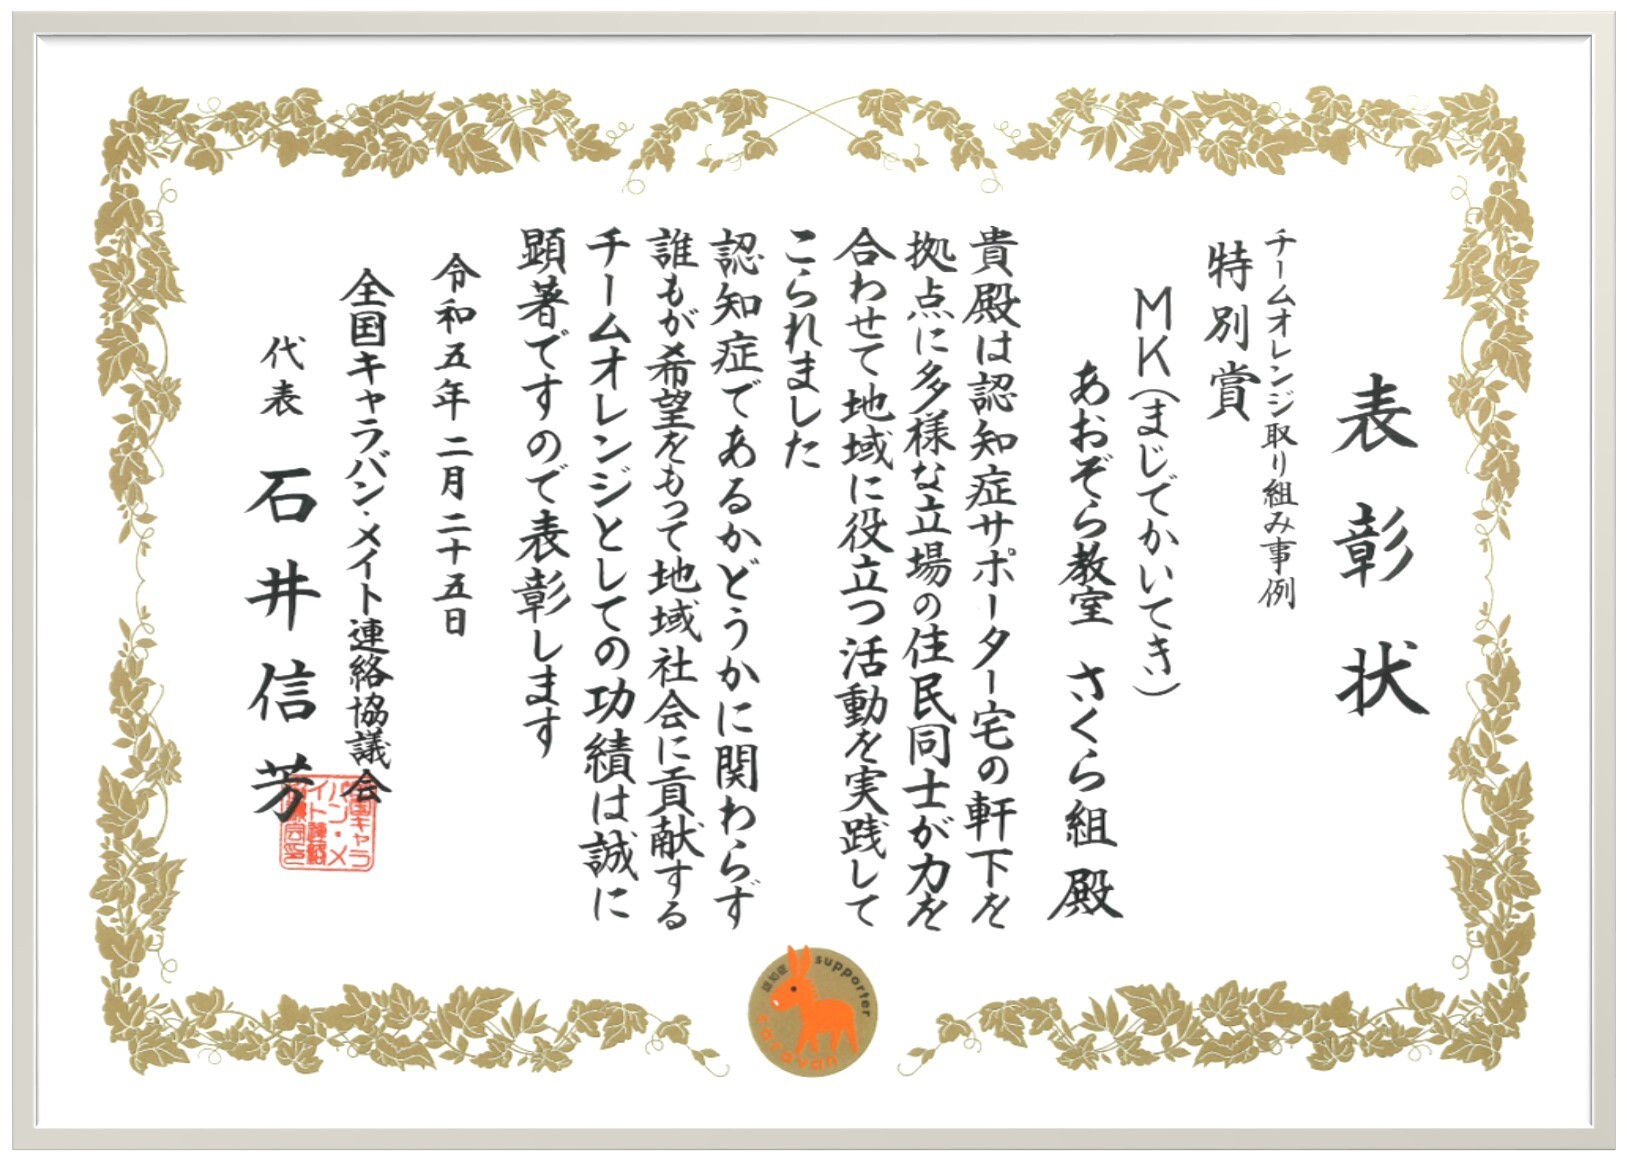 表彰状
チームオレンジ取り組み事例
特別賞
MK(まじでかいてき)
あおぞら教室 さくら組 殿
貴殿は認知症サポーター宅の軒下を
拠点に多様な立場の住民同士が力を
合わせて地域に役立つ活動を実践して
こられました
認知症であるかどうかに関わらず
誰もが希望をもって地域社会に貢献する
チームオレンジとしての功績は誠に
顕著ですので表彰します
令和五年二月二十五日
全国キャラバン・メイト連絡協議会
代表 石井信芳
全国キャラ
バン・メ
イト連絡
協議会印
認知症 supporter
caravan